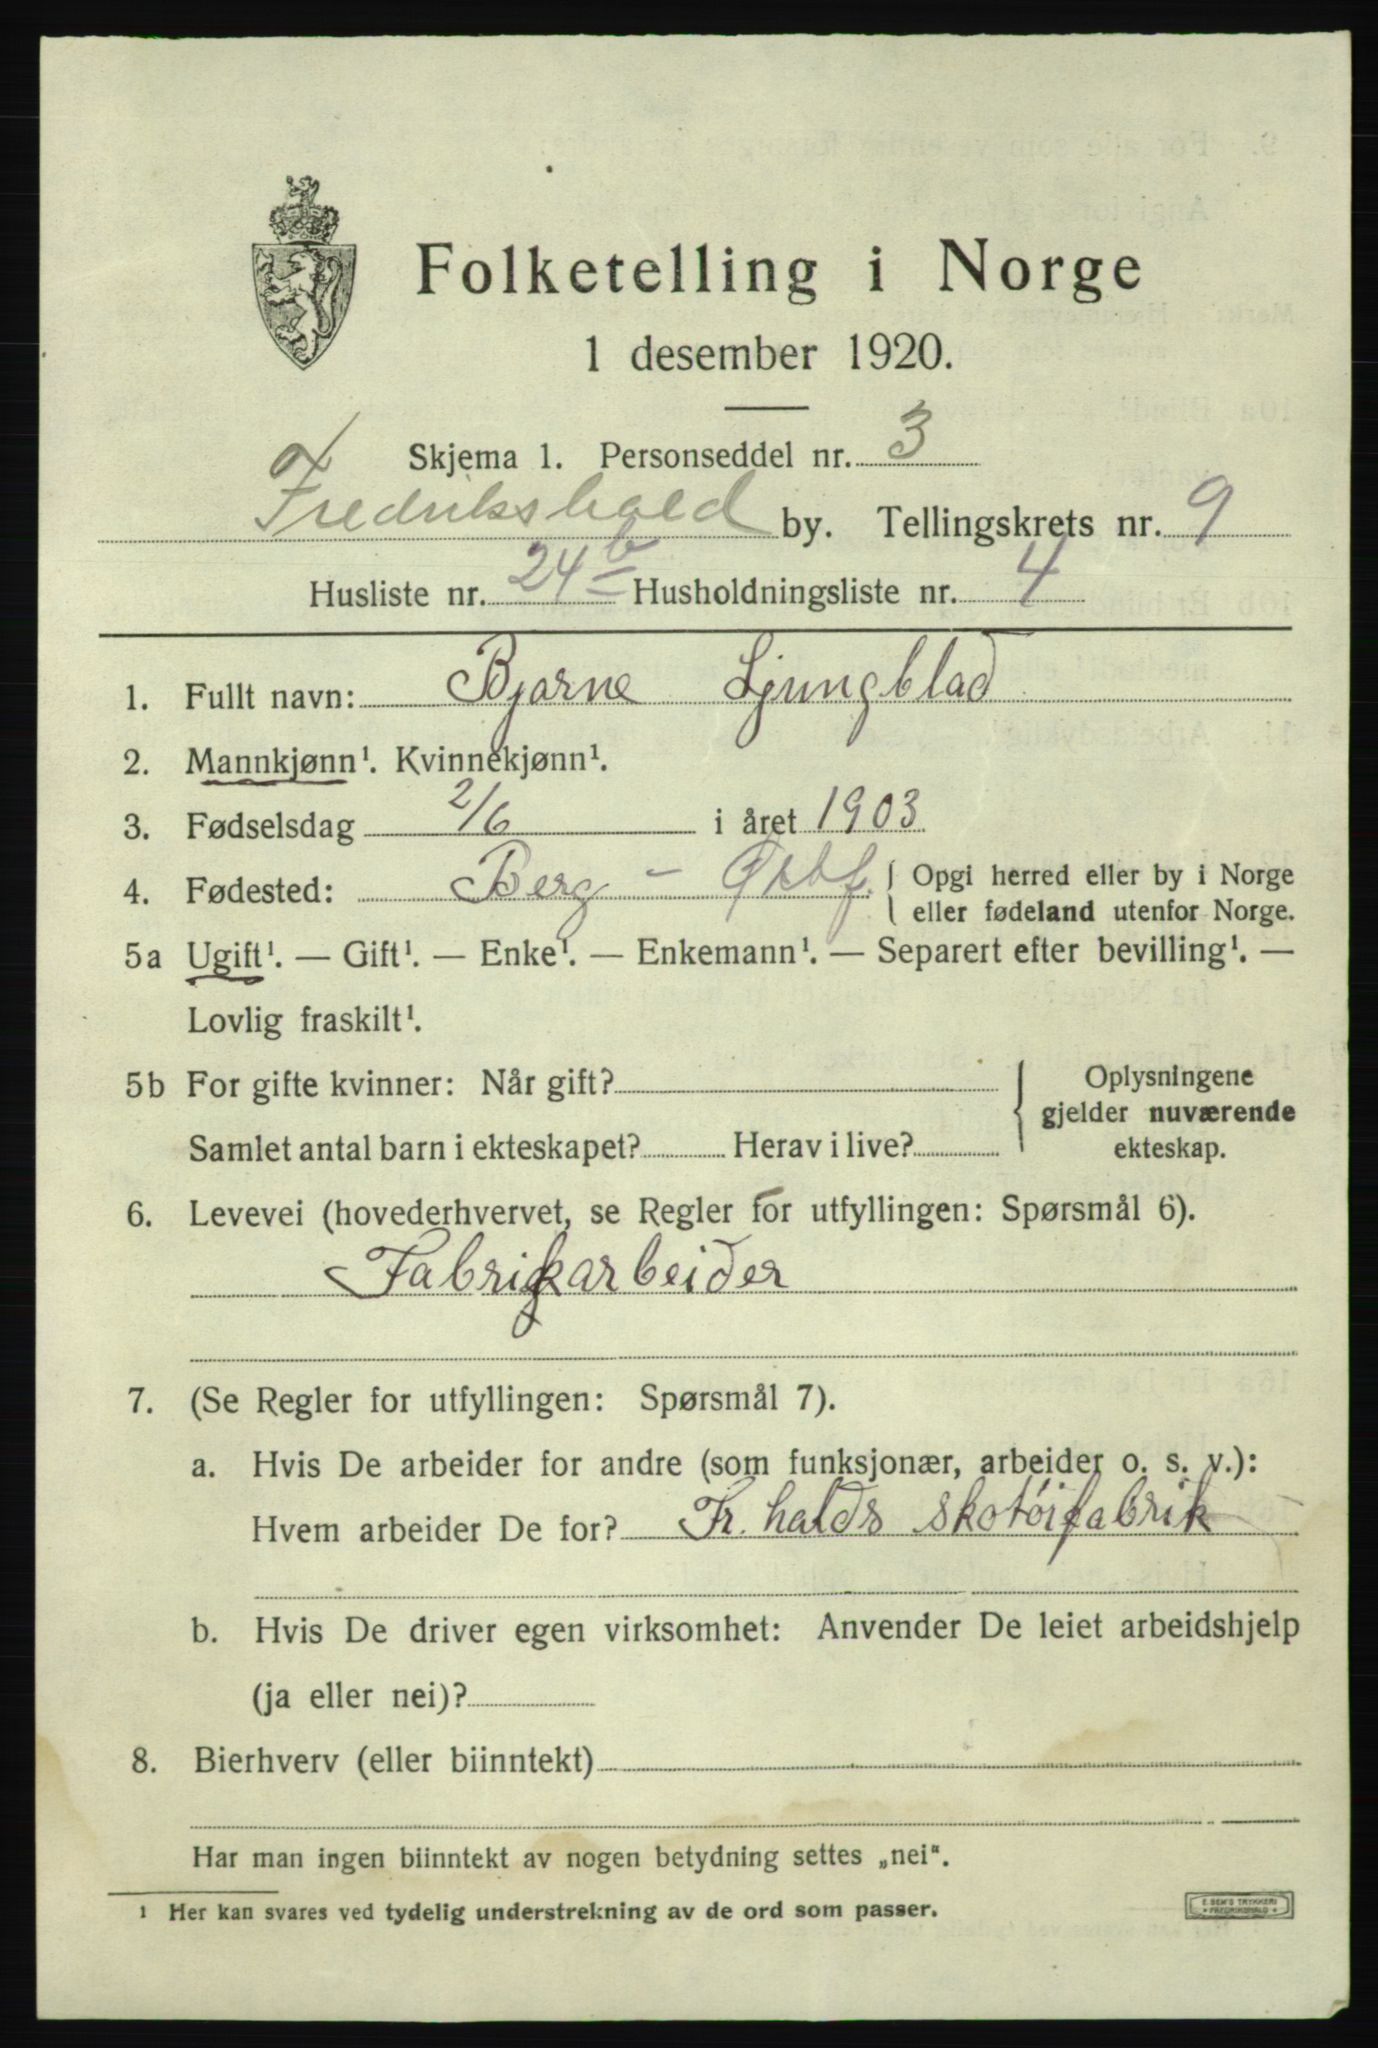 Folketelling i Norge
1 desember 1920.
Skjema 1. Personseddel nr. 3
Fredrikshald by. Tellingskrets nr. 9
Husliste nr. 24b Husholdningsliste nr. 4
1. Fullt navn: Bjarne Ljungblad
2. Mannkjønn¹. Kvinnekjønn¹.
3. Fødselsdag 2/6 i året 1903
4. Fødested: Berg - Østf. { Opgi herred eller by i Norge
eller fødeland utenfor Norge.
5a Ugift¹. — Gift¹. — Enke¹. — Enkemann¹. — Separert efter bevilling¹. —
Lovlig fraskilt¹.
5b For gifte kvinner: Når gift?
Samlet antal barn i ekteskapet? Herav i live?
{ Oplysningene
gjelder nuværende
ekteskap.
6. Levevei (hovederhvervet, se Regler for utfyllingen: Spørsmål 6).
Fabrikarbeider
7. (Se Regler for utfyllingen: Spørsmål 7).
a. Hvis De arbeider for andre (som funksjonær, arbeider o. s. v.):
Hvem arbeider De for? Fr. halds skotöifabrik
b. Hvis De driver egen virksomhet: Anvender De leiet arbeidshjelp
(ja eller nei)?
8. Bierhverv (eller biinntekt)
Har man ingen biinntekt av nogen betydning settes „nei".
¹ Her kan svares ved tydelig understrekning av de ord som passer.
E. SEM'S TRYKKERI
FREDRIKSHALD